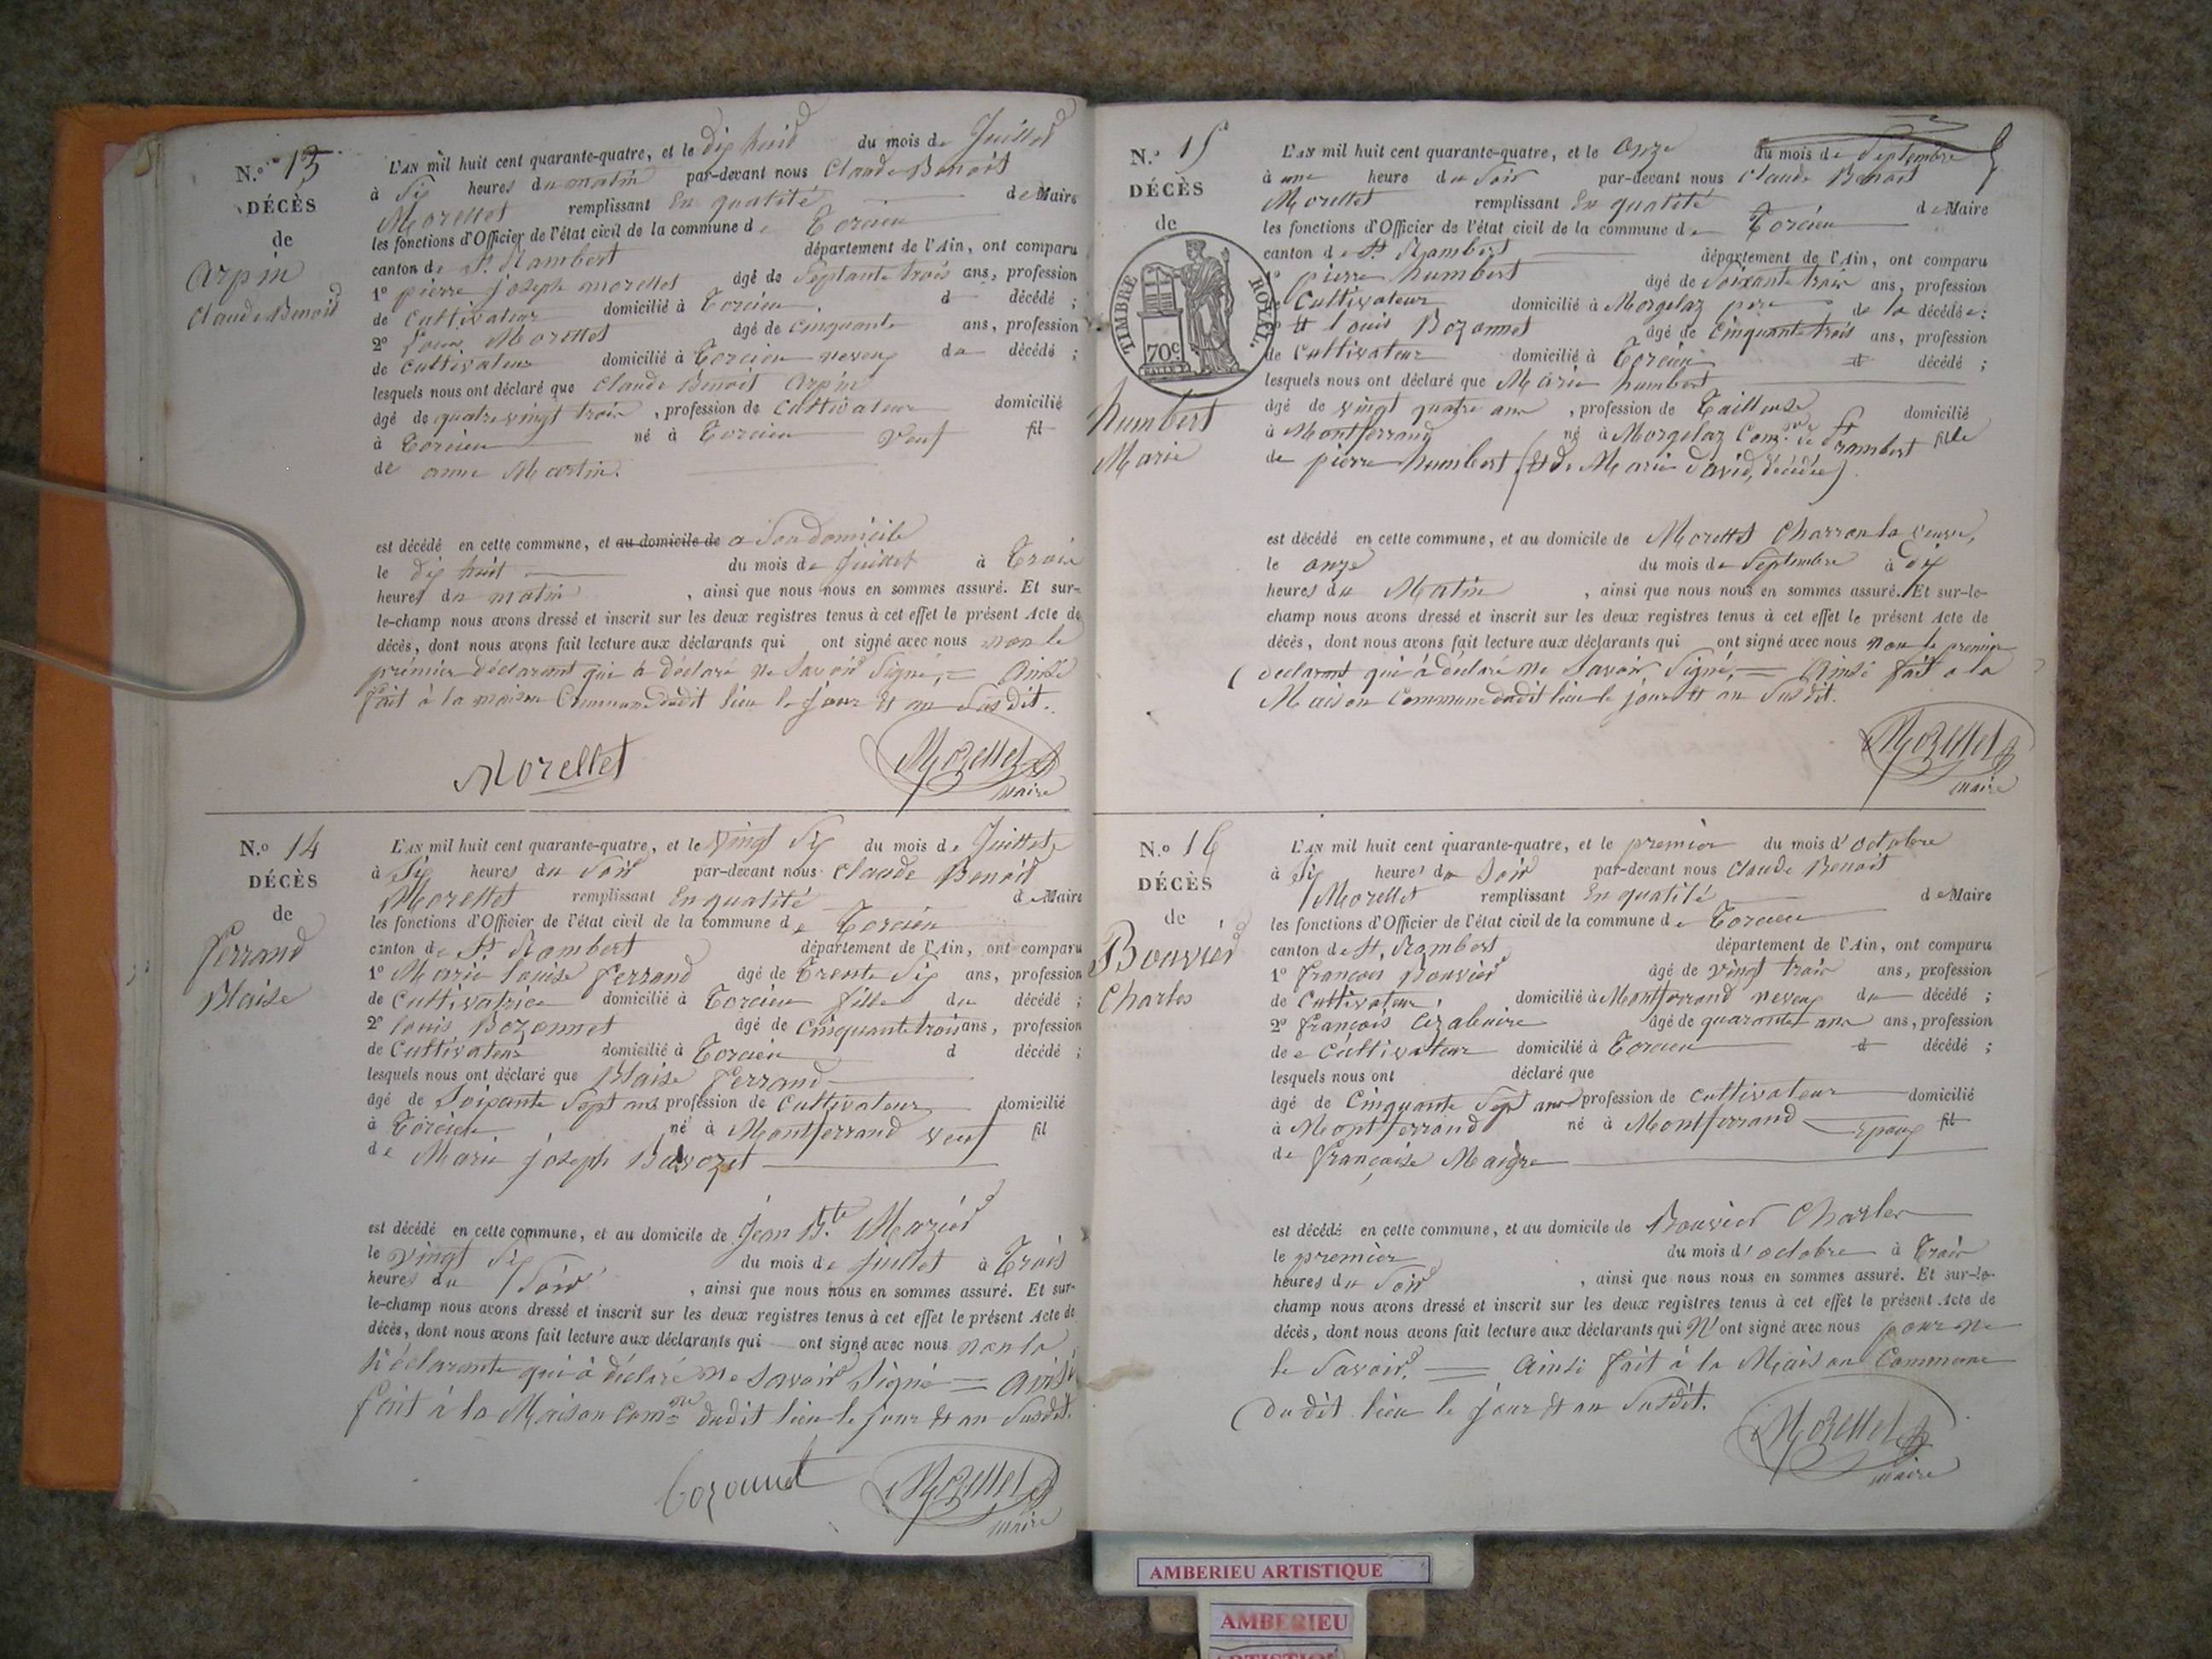 N.o 13
DÉCÈS
de
Arpin
Claude Benoit
L'AN mil huit cent quarante-quatre, et le dix huit du mois de Juillet
à Six heures du matin par-devant nous Claude Benoit
Morellet remplissant En qualité de Maire
les fonctions d'Officier de l'état civil de la commune de Torcieu
canton de St. Rambert département de l'Ain, ont comparu
1o pierre joseph morellet âgé de Septante trois ans, profession
de Cultivateur domicilié à Torcieu d décédé ;
2o Louis Morellet âgé de cinquante ans, profession
de cultivateur domicilié à Torcieu neveux du décédé ;
lesquels nous ont déclaré que Claude Benoit Arpin
âgé de quatre vingt trois , profession de Cultivateur domicilié
à Torcieu né à Torcieu veuf fil
de anne Martin.
est décédé en cette commune, et au domicile de a Son domicile
le dix huit du mois de Juillet à Trois
heures du matin , ainsi que nous nous en sommes assuré. Et sur-
le-champ nous avons dressé et inscrit sur les deux registres tenus à cet effet le présent Acte de
décès, dont nous avons fait lecture aux déclarants qui ont signé avec nous non le
premier déclarant qui a déclaré ne Savoir Signé, = Ainsi
fait à la maison Commune dudit lieu le jour et an Susdit.
Morellet
Morellet
maire
N.o 14
DÉCÈS
de
Ferrand
Blaise
L'AN mil huit cent quarante-quatre, et le vingt Six du mois de Juillet
à Six heures du Soir par-devant nous Claude Benoit
Morellet remplissant En qualité de Maire
les fonctions d'Officier de l'état civil de la commune de Torcieu
canton de St Rambert département de l'Ain, ont comparu
1o Marie louise Ferrand âgé de Trente Six ans, profession
de Cultivatrice domicilié à Torcieu fille du décédé ;
2o louis Bozonnet âgé de Cinquante trois ans, profession
de Cultivateur domicilié à Torcieu d décédé ;
lesquels nous ont déclaré que Blaise Ferrand
âgé de Soixante Sept ans profession de Cultivateur domicilié
à Torcieu né à Montferrand veuf fil
de Marie joseph
est décédé en cette commune, et au domicile de Jean Bte.
le vingt Six du mois de juillet à Trois
heures du Soir , ainsi que nous nous en sommes assuré. Et sur-
le-champ nous avons dressé et inscrit sur les deux registres tenus à cet effet le présent Acte de
décès, dont nous avons fait lecture aux déclarants qui ont signé avec nous non la
déclarante qui à déclaré ne Savoir Signé = ainsi
fait à la Maison Comne dudit lieu le jour et an Susdit.
Bozonnet
Morellet
maire
N.o 15
DÉCÈS
de
TIMBRE ROYAL.
70c
humbert
Marie
L'AN mil huit cent quarante-quatre, et le Onze du mois de Septembre
à une heure du Soir par-devant nous Claude Benoit
Morellet remplissant En qualité de Maire
les fonctions d'Officier de l'état civil de la commune de Torcieu
canton de St. Rambert département de l'Ain, ont comparu
1o pierre humbert âgé de Soixante trois ans, profession
de Cultivateur domicilié à Morgelaz pere de la décédée :
2o Et louis Bozonnet âgé de Cinquante trois ans, profession
de Cultivateur domicilié à Torcieu d décédé ;
lesquels nous ont déclaré que Marie humbert
âgé de vingt quatre ans , profession de Tailleuse domicilié
à Montferrand né à Morgelaz Comne de St rambert fille
de pierre humbert (Et de Marie david, décédée)
est décédé en cette commune, et au domicile de Morellet Charron la veuve,
le onze du mois de Septembre à dix
heures du Matin , ainsi que nous nous en sommes assuré. Et sur-le-
champ nous avons dressé et inscrit sur les deux registres tenus à cet effet le présent Acte de
décès, dont nous avons fait lecture aux déclarants qui ont signé avec nous non le premier
déclarant qui à déclaré ne Savoir Signé, = Ainsi fait a la
Maison Commune dudit lieu le jour et an Susdit.
Morellet
maire
N.o 16
DÉCÈS
de
Bouvier
Charles
L'AN mil huit cent quarante-quatre, et le premier du mois d'octobre
à Six heures du Soir par-devant nous Claude Benoit
Morellet remplissant En qualité de Maire
les fonctions d'Officier de l'état civil de la commune de Torcieu
canton de St, Rambert département de l'Ain, ont comparu
1o françois Bouvier âgé de vingt trois ans, profession
de Cultivateur domicilié à Montferrand neveux du décédé ;
2o françois âgé de quarante ans ans, profession
de Cultivateur domicilié à Torcieu d décédé ;
lesquels nous ont déclaré que
âgé de Cinquante Sept ans profession de cultivateur domicilié
à Montferrand né à Montferrand Epoux fil
de françoise Maigre
est décédé en cette commune, et au domicile de Bouvier Charles
le premier du mois d'octobre à Trois
heures du Soir , ainsi que nous nous en sommes assuré. Et sur-le-
champ nous avons dressé et inscrit sur les deux registres tenus à cet effet le présent Acte de
décès, dont nous avons fait lecture aux déclarants qui N'ont signé avec nous pour ne
le Savoir. = Ainsi fait à la Maison Commune
du dit lieu le jour et an Susdit.
Morellet
maire
AMBERIEU ARTISTIQUE
AMBERIEU
ARTISTIQUE